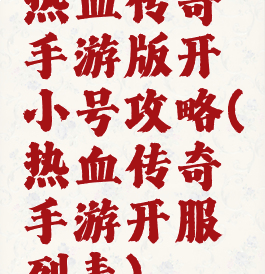 热血传奇
手游版开
小号攻略(
热血传奇
手游开服
列表)